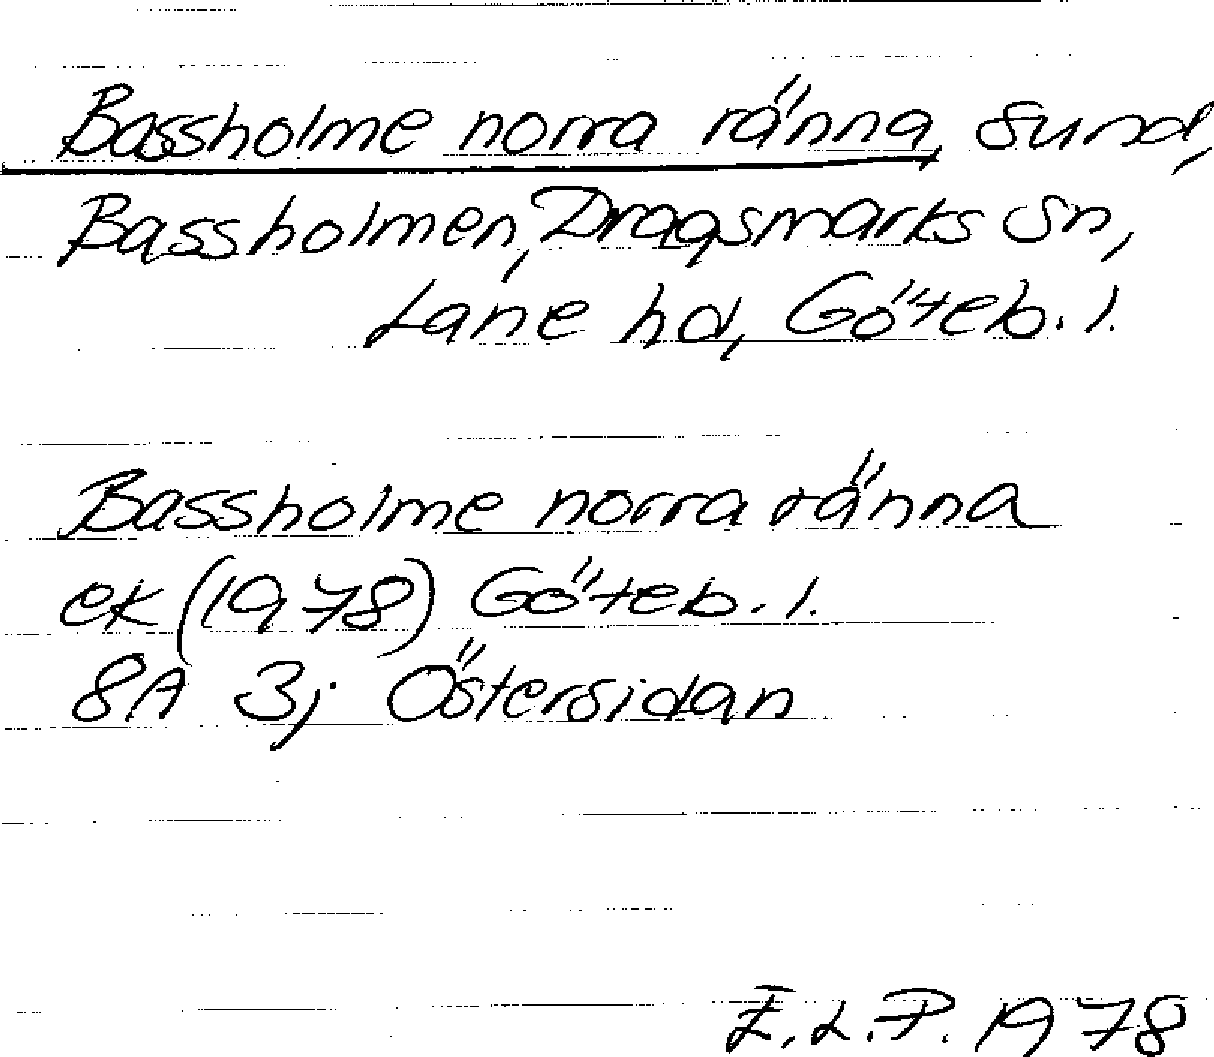 Bassholme norra ränna, sund,
Bassholmen, Dragsmarks sn,
Lane hd, Göteb. l.
Bassholme norra ränna
ek (1978) Göteb. l.
8A 3j Östersidan
E.L.P. 1978